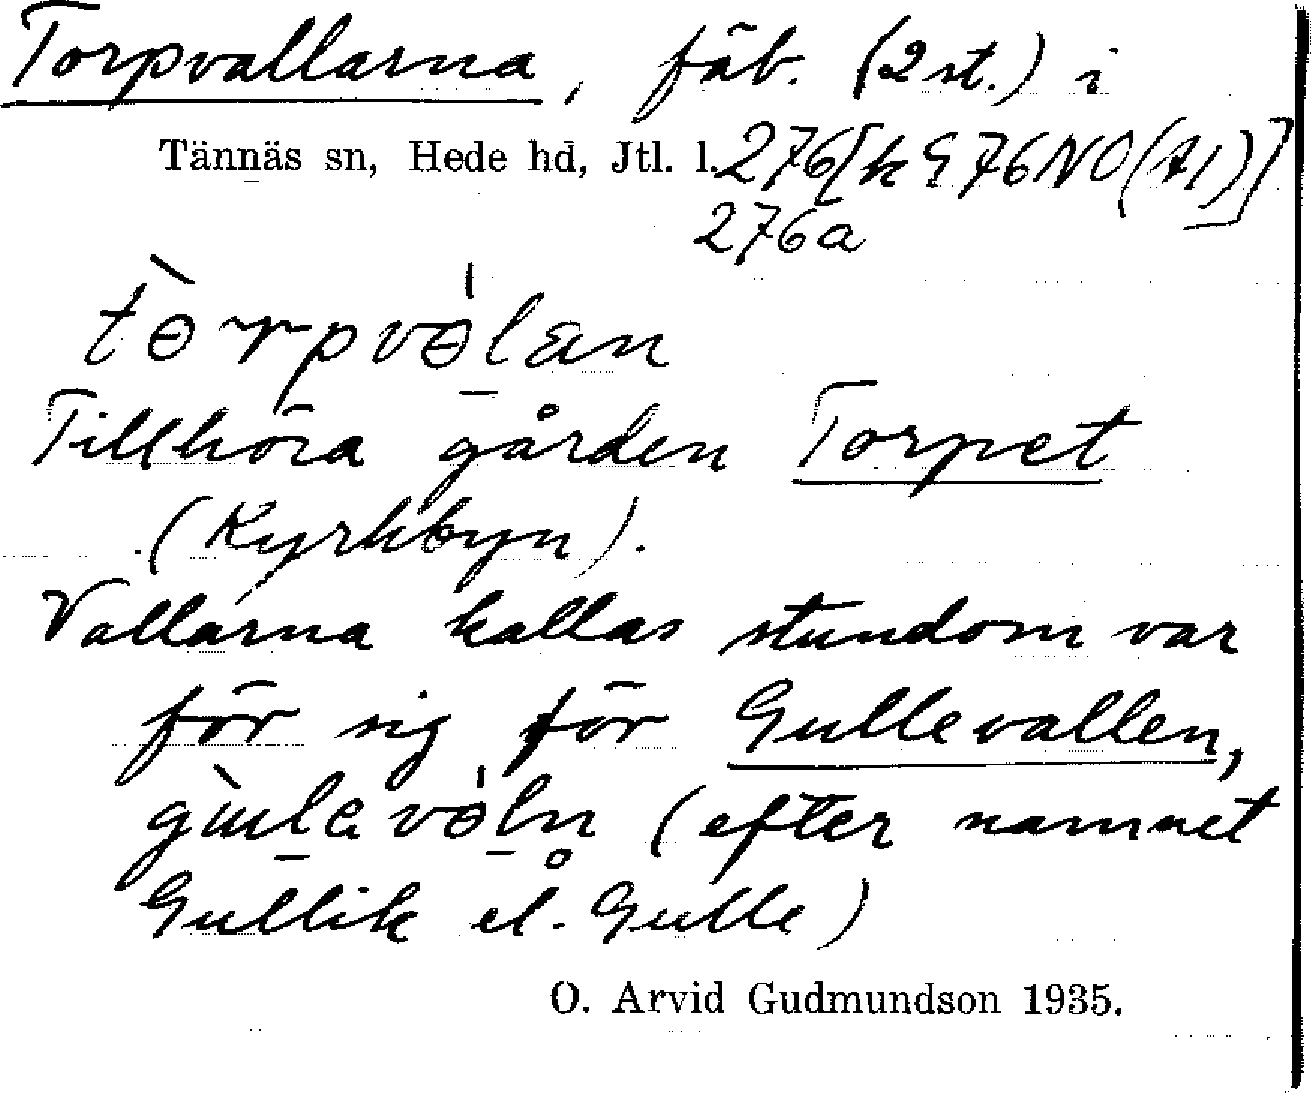 Torpvallarna, fäb. (2 st.) i
Tännäs sn, Hede hd, Jtl. l. 276[k G 76 NO (A1)]
276a
tòrpvɵ́lan
Tillhöra gården Torpet
(Kyrkbyn).
Vallarna kallas stundom var
för sig för Gullevallen,
(efter namnet
Gullik el. Gulle)
O. Arvid Gudmundson 1935.